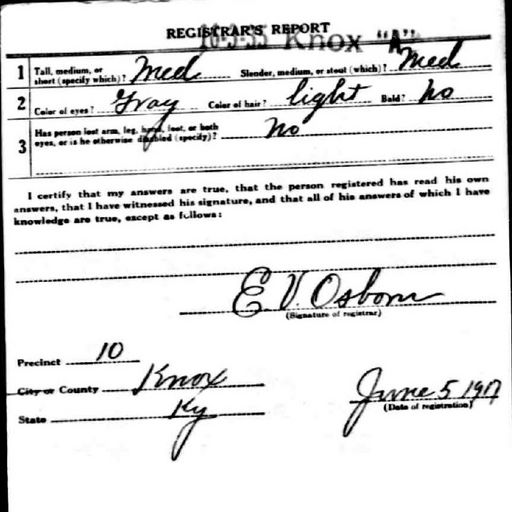 REGISTRAR'S REPORT
Knox "A"
1 Tall, medium, or short (specify which)? Med Slender, medium, or stout (which)? Med
2 Color of eyes? Gray Color of hair? light Bald? No
3 Has person lost arm, leg, hand, foot, or both
eyes, or is he otherwise disabled (specify)? No
I certify that my answers are true, that the person registered has read his own
answers, that I have witnessed his signature, and that all of his answers of which I have
knowledge are true, except as follows:
E. V. Osborn
(Signature of registrar)
Precinct 10
City or County Knox
State Ky
June 5 1917
(Date of registration)